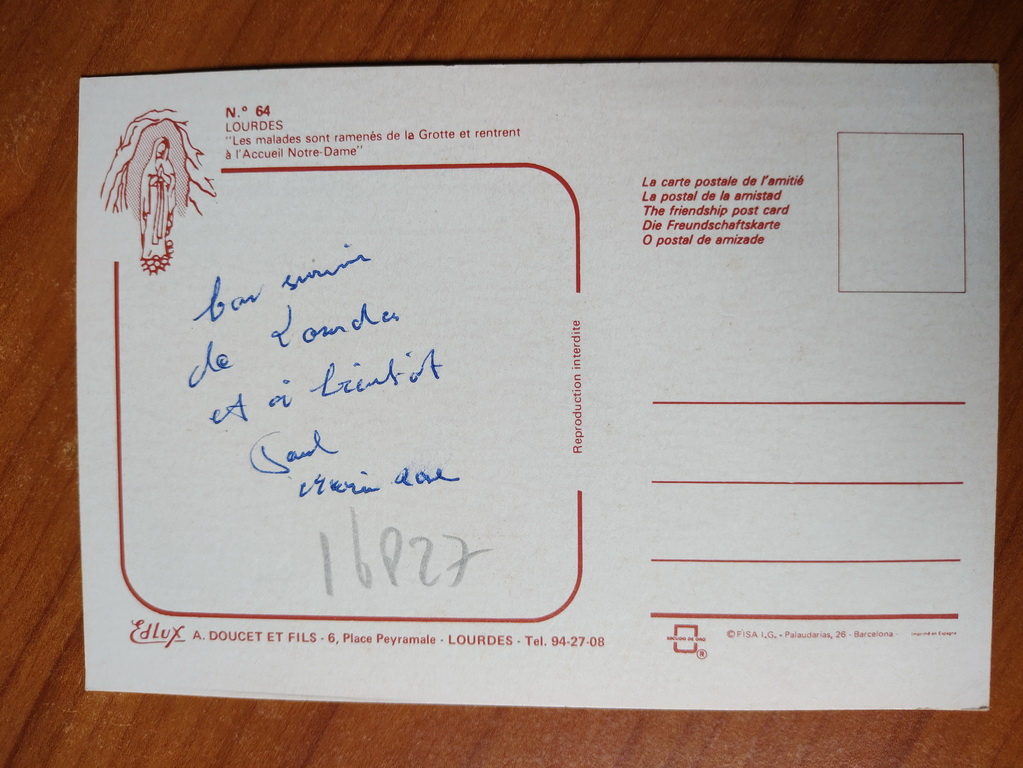 N.º 64
LOURDES
"Les malades sont ramenés de la Grotte et rentrent
à l'Accueil Notre-Dame"
La carte postale de l'amitié
La postal de la amistad
The friendship post card
Die Freundschaftskarte
O postal de amizade
bon
de Lourdes
et à bientôt
Paul
16P27
Reproduction interdite
Edlux A. DOUCET ET FILS - 6, Place Peyramale - LOURDES - Tel. 94-27-08
ESCUDO DE ORO
®
© FISA I.G. - Palaudarias, 26 - Barcelona